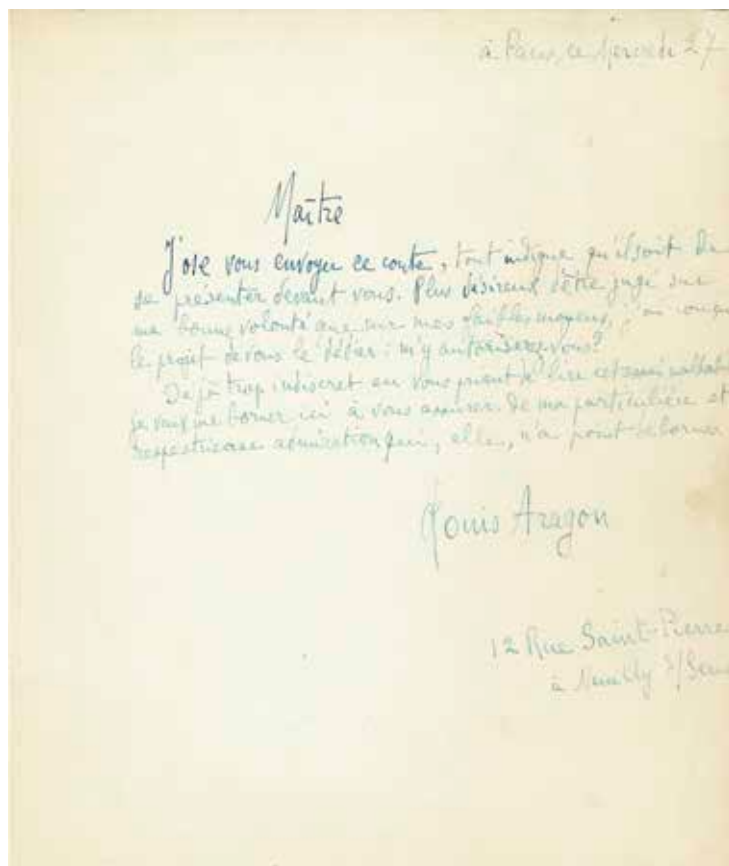 à Paris, ce Mercredi 27
Maître
J'ose vous envoyer ce conte, tout indigne qu'il soit de
se présenter devant vous. Plus désireux d'être jugé sur
ma bonne volonté que sur mes faibles moyens, j'ai conçu
le projet de vous le dédier : m'y autoriserez-vous?
Déjà trop indiscret en vous priant de lire cet
je veux me borner ici à vous assurer de ma particulière et
respectueuse admiration qui, elle, n'a point de bornes
Louis Aragon
12 Rue Saint-Pierre
à Neuilly s/Seine